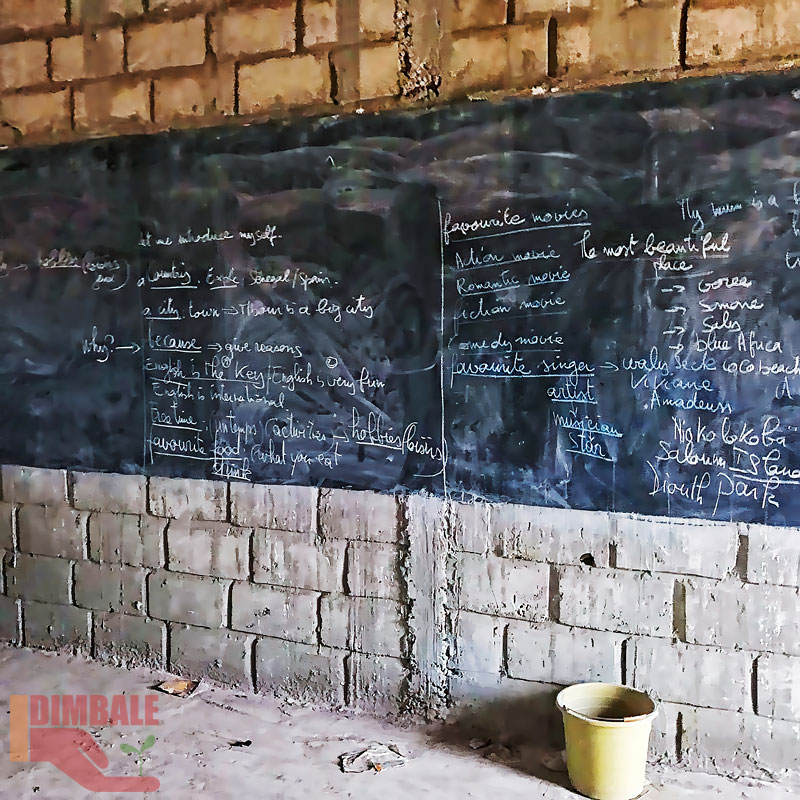 let me introduce myself.
hobbies (loisirs
a Country. Exple Sénégal/Spain.
a city, town → Thour is a big city
why? → because → give reasons
English is the key. English is very fun
English is international
Free time: (activities → hobbies (loisirs)
favourite food (what you eat
drink
favourite movies
Action movie
Romantic movie
fiction movie
comedy movie
favourite singer → waly seck
artist
musician
Star
Viviane
Amadeus
is a
The most beautiful
place
→ Goree
→ Somone
→ Saly
→ blue Africa
coco beach
Niokolokoba
Saloum Island
Park
DIMBALE